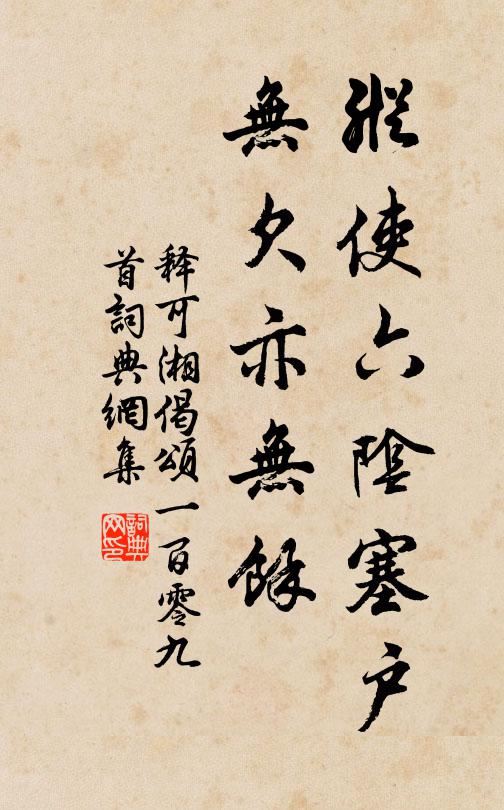 縱使六陰塞戶
無欠亦無餘
釋可湘偈頌一百零九
首詞典網集
詞典网印